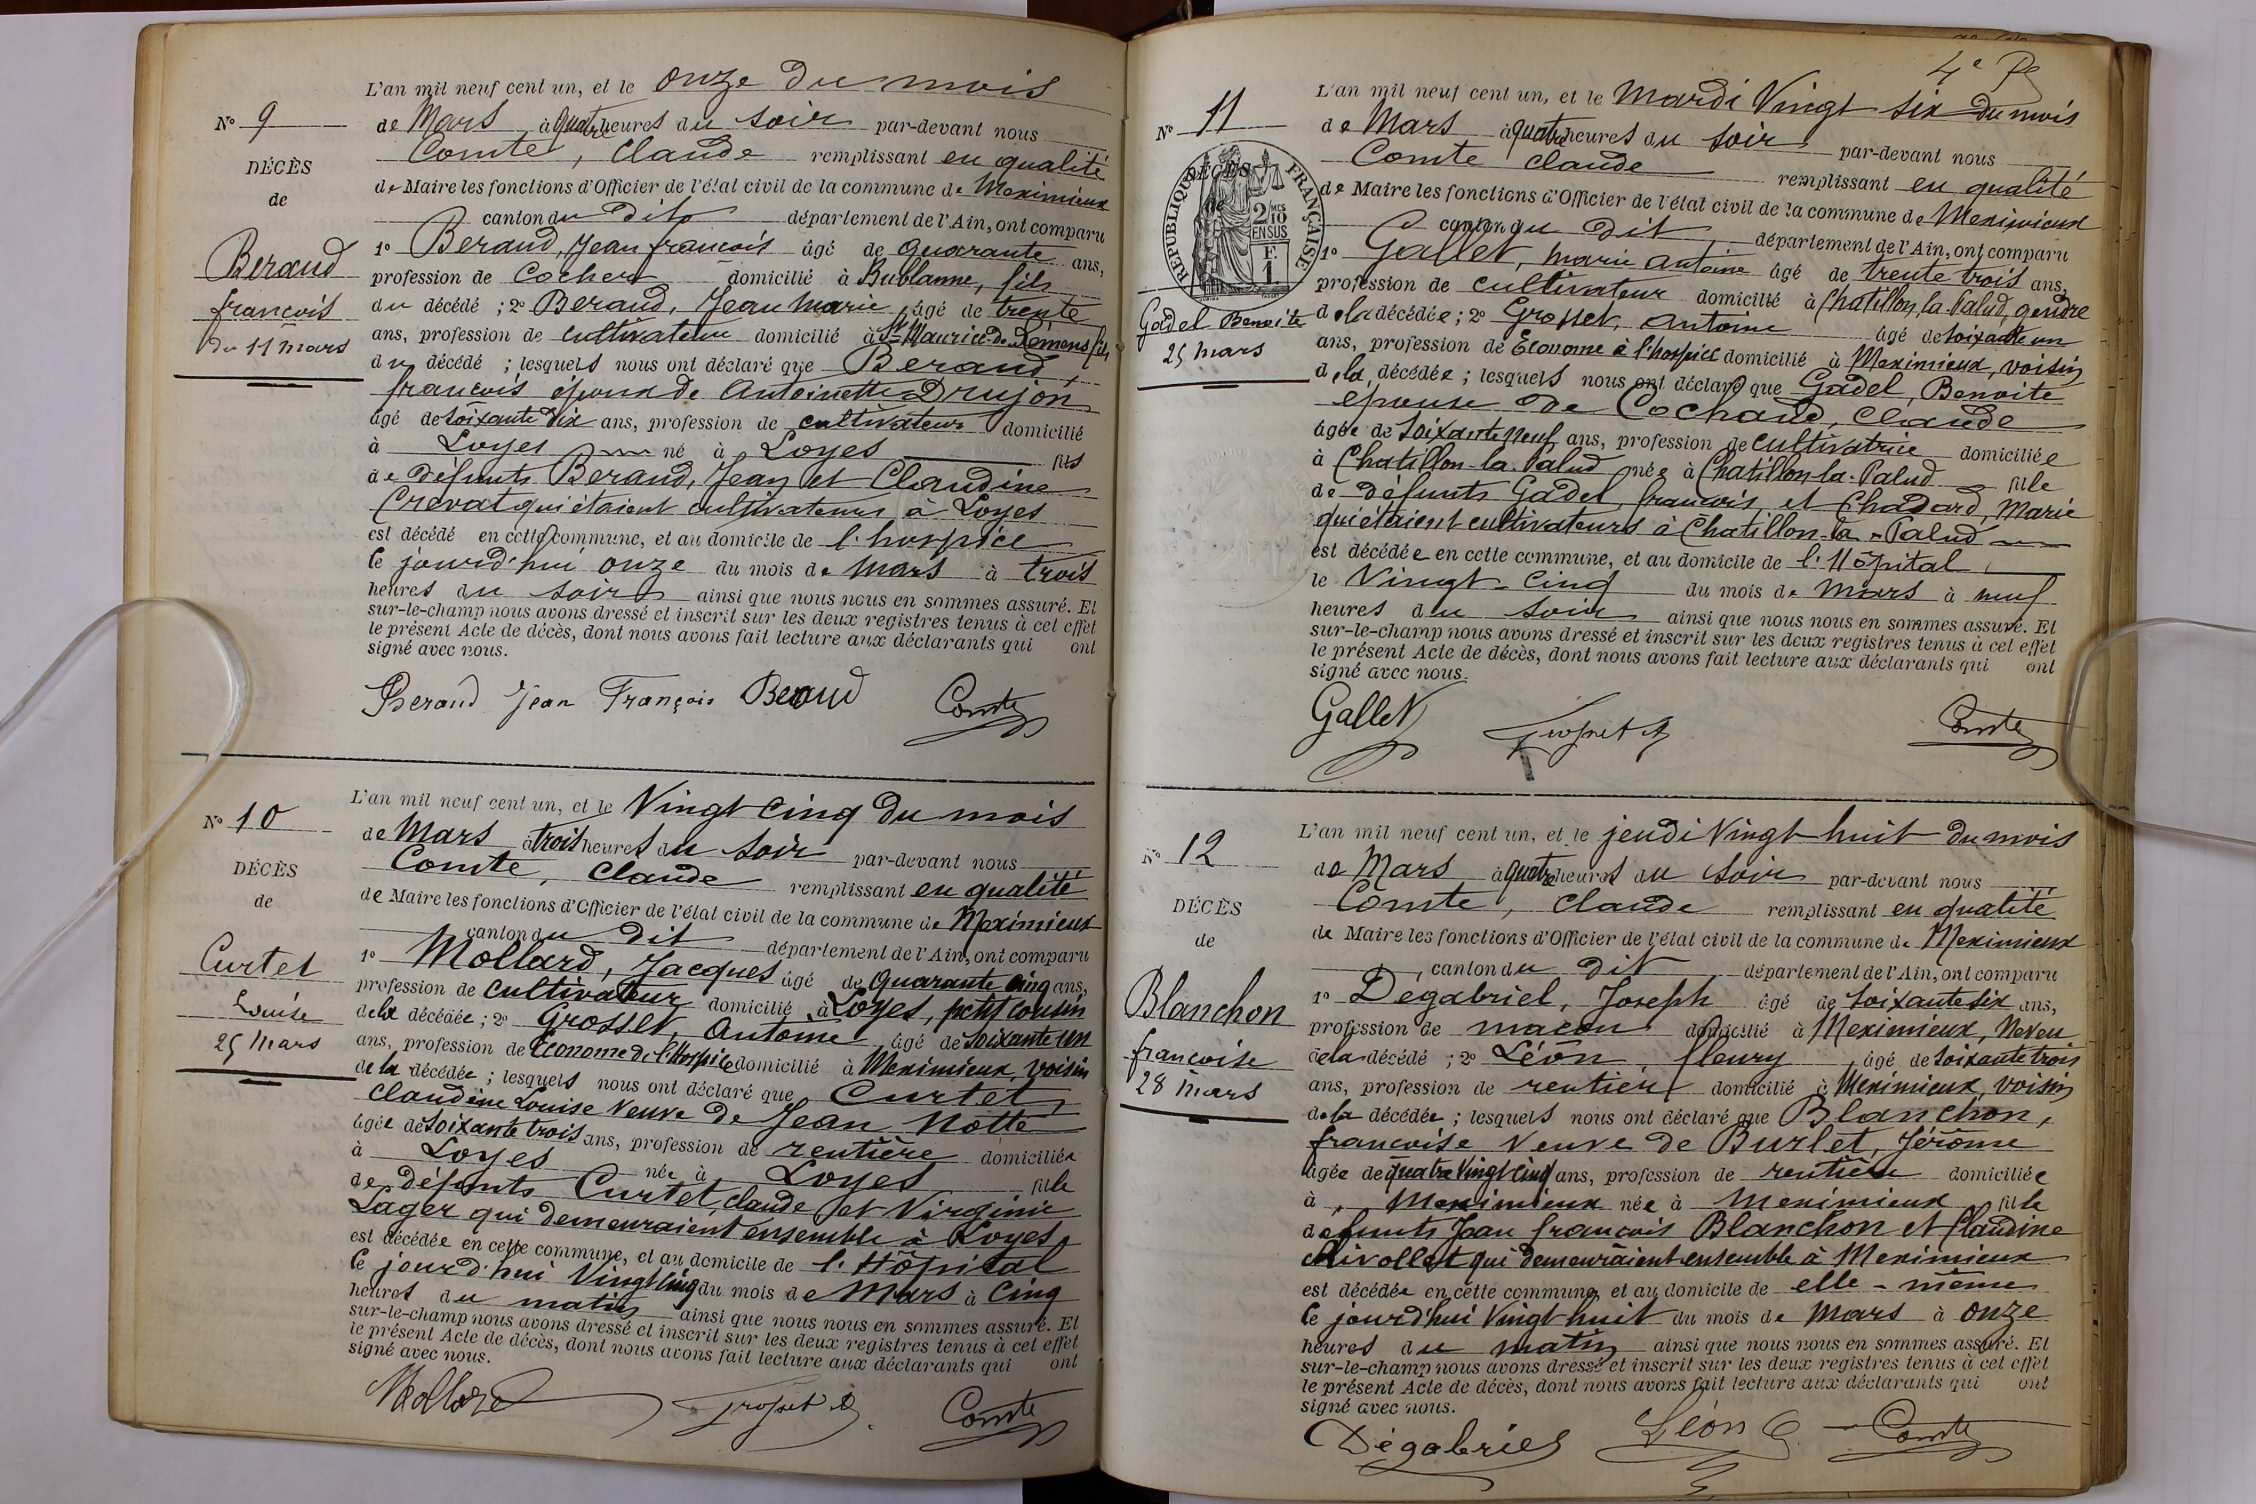 L'an mil neuf cent un, et le onze du mois
N° 9
de Mars à quatre heures du soir par-devant nous
Comte, Claude remplissant en qualité
DÉCÈS
de Maire les fonctions d'Officier de l'état civil de la commune de Meximieux
de
canton du dit département de l'Ain, ont comparu
1° Beraud, Jean francois âgé de quarante ans,
Beraud
profession de Cocher domicilié à Bublanne, fils
francois
du décédé ; 2° Beraud, Jean Marie âgé de trente
du 11 mars
ans, profession de cultivateur domicilié à St Maurice-de-Rémens fils
du décédé ; lesquels nous ont déclaré que Beraud,
francois époux de Antoinette Drujon
âgé de soixante dix ans, profession de cultivateur domicilié
à Loyes né à Loyes fils
de défunts Beraud, Jean et Claudine
Crevat qui étaient cultivateurs à Loyes
est décédé en cette commune, et au domicile de l'hospice
le jourd'hui onze du mois de Mars à trois
heures du soir ainsi que nous nous en sommes assuré. Et
sur-le-champ nous avons dressé et inscrit sur les deux registres tenus à cet effet
le présent Acte de décès, dont nous avons fait lecture aux déclarants qui ont
signé avec nous.
Beraud Jean François Beraud Comte
L'an mil neuf cent un, et le Vingt cinq du mois
N° 10
de Mars à trois heures du soir par-devant nous
Comte, Claude remplissant en qualité
DÉCÈS
de Maire les fonctions d'Officier de l'état civil de la commune de Meximieux
de
canton du dit département de l'Ain, ont comparu
1° Mollard, Jacques âgé de quarante cinq ans,
Curtet
profession de cultivateur domicilié à Loyes, petit cousin
Louise
de la décédée ; 2° Grosset, Antoine âgé de soixante un
25 Mars
ans, profession de Econome de l'Hospice domicilié à Meximieux, voisin
de la décédée ; lesquels nous ont déclaré que Curtet,
Claudine Louise Veuve de Jean Notte
âgée de soixante trois ans, profession de rentière domiciliée
à Loyes née à Loyes fille
de défunts Curtet, claude et Virginie
Lager qui demeuraient ensemble à Loyes
est décédée en cette commune, et au domicile de l'Hôpital
le jourd'hui Vingt cinq du mois de Mars à cinq
heures du matin ainsi que nous nous en sommes assuré. Et
sur-le-champ nous avons dressé et inscrit sur les deux registres tenus à cet effet
le présent Acte de décès, dont nous avons fait lecture aux déclarants qui ont
signé avec nous.
Mollard Grosset A Comte
4e Pe
L'an mil neuf cent un, et le Mardi Vingt six du mois
N° 11
de Mars à quatre heures du soir par-devant nous
Comte Claude remplissant en qualité
DÉCÈS
RÉPUBLIQUE FRANÇAISE
2/10 MES EN SUS
F. 1
de Maire les fonctions d'Officier de l'état civil de la commune de Meximieux
de
canton du dit département de l'Ain, ont comparu
1° Gallet, Marie Antoine âgé de trente trois ans,
profession de cultivateur domicilié à Chatillon la Palud, gendre
Gadel Benoite
de la décédée ; 2° Grosset, Antoine âgé de soixante un
25 Mars
ans, profession de Econome à l'hospice domicilié à Meximieux, voisin
de la décédée ; lesquels nous ont déclaré que Gadel, Benoite
épouse de Cochand, Claude
âgée de soixante neuf ans, profession de cultivatrice domiciliée
à Chatillon-la-Palud née à Chatillon-la-Palud fille
de défunts Gadel, francois, et Chadard, Marie
qui étaient cultivateurs à Chatillon-la-Palud
est décédée en cette commune, et au domicile de l'Hôpital
le Vingt-cinq du mois de Mars à neuf
heures du soir ainsi que nous nous en sommes assuré. Et
sur-le-champ nous avons dressé et inscrit sur les deux registres tenus à cet effet
le présent Acte de décès, dont nous avons fait lecture aux déclarants qui ont
signé avec nous.
Gallet Grosset A Comte
L'an mil neuf cent un, et le jeudi Vingt huit du mois
N° 12
de Mars à quatre heures du soir par-devant nous
Comte, Claude remplissant en qualité
DÉCÈS
de Maire les fonctions d'Officier de l'état civil de la commune de Meximieux
de
canton du dit département de l'Ain, ont comparu
1° Dégabriel, Joseph âgé de soixante six ans,
Blanchon
profession de macon domicilié à Meximieux, Neveu
francoise
de la décédé ; 2° Léon, fleury âgé de soixante trois
28 Mars
ans, profession de rentier domicilié à Meximieux, voisin
de la décédée ; lesquels nous ont déclaré que Blanchon,
francoise Veuve de Burlet, Jérôme
âgée de quatre Vingt cinq ans, profession de rentière domiciliée
à Meximieux née à Meximieux fille
defunts Jean francois Blanchon et Claudine
Rivollet qui demeuraient ensemble à Meximieux
est décédée en cette commune, et au domicile de elle-même
le jourd'hui Vingt huit du mois de Mars à onze
heures du matin ainsi que nous nous en sommes assuré. Et
sur-le-champ nous avons dressé et inscrit sur les deux registres tenus à cet effet
le présent Acte de décès, dont nous avons fait lecture aux déclarants qui ont
signé avec nous.
Dégabriel Léon Comte